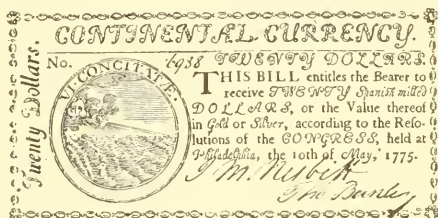 CONTINENTAL CURRENCY.
No. 6938 TWENTY DOLLARS.
Twenty Dollars.
VI CONCITATÆ.
THIS BILL entitles the Bearer to
receive TWENTY Spanish milled
DOLLARS, or the Value thereof
in Gold or Silver, according to the Reso-
lutions of the CONGRESS, held at
Philadelphia, the 10th of May, 1775.
J M Nesbitt